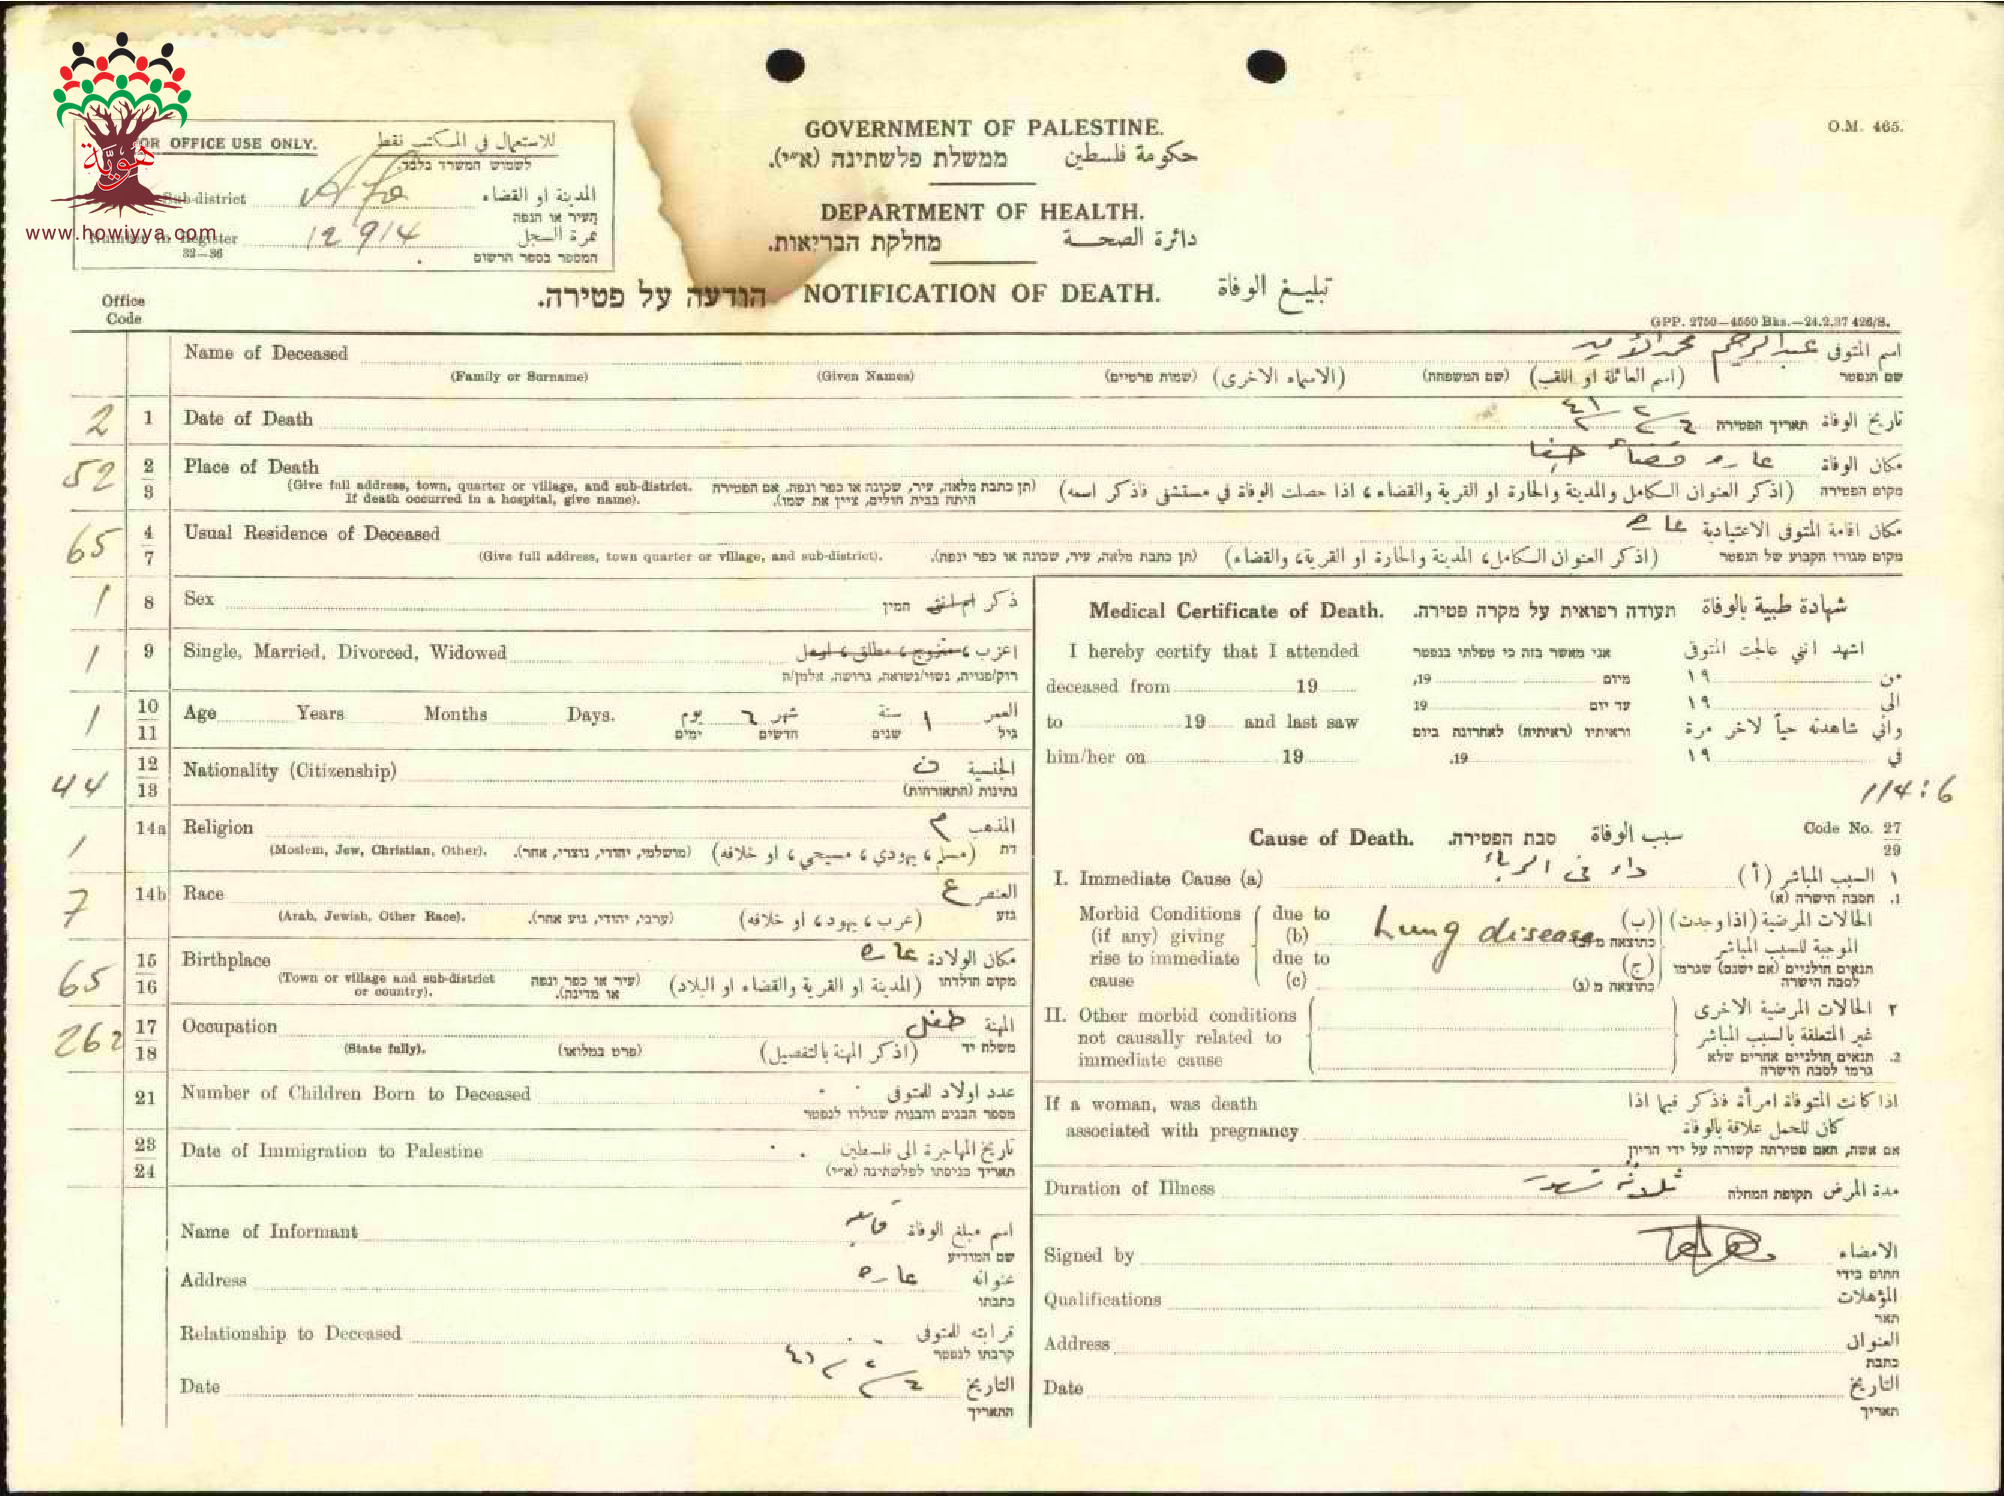 هويّة
www.howiyya.com
FOR OFFICE USE ONLY. للاستعمال في المكتب فقط
לשמוש המשרד בלבד.
Sub-district المدينة او القضاء
העיר או הנפה
Number in Register 12914 نمرة السجل
32—36 המספר בספר הרשום
O.M. 465.
GOVERNMENT OF PALESTINE.
حكومة فلسطين ממשלת פלשתינה (א״י).
DEPARTMENT OF HEALTH.
دائرة الصحة מחלקת הבריאות.
הודעה על פטירה. NOTIFICATION OF DEATH. تبليغ الوفاة
Office
Code
GPP. 2750—4550 Bks.—24.2.37 426/S.
Name of Deceased اسم المتوفى عبدالرحيم محمد
(Family or Surname) (Given Names) (שמות פרטיים) (الاسماء الاخرى) (שם המשפחה) (اسم العائلة او اللقب) שם הנפטר
2 1 Date of Death תאריך הפטירה تاريخ الوفاة
52 2 Place of Death مكان الوفاة عاره قضاء حيفا
3 (Give full address, town, quarter or village, and sub-district. If death occurred in a hospital, give name).
(תן כתבת מלאה, עיר, שכונה או כפר ונפה. אם הפטירה היתה בבית חולים, ציין את שמו).
(اذكر العنوان الكامل والمدينة والحارة او القرية والقضاء، اذا حصلت الوفاة في مستشفى فاذكر اسمه) מקום הפטירה
65 4 Usual Residence of Deceased مكان اقامة المتوفى الاعتيادية عاره
7 (Give full address, town quarter or village, and sub-district). (תן כתבת מלאה, עיר, שכונה או כפר ונפה). (اذكر العنوان الكامل، المدينة والحارة او القرية، والقضاء) מקום מגורו הקבוע של הנפטר
1 8 Sex המין ذكر ام انثى
1 9 Single, Married, Divorced, Widowed اعزب، متزوج، مطلق، ارمل
רוק/פנויה, נשוי/נשואה, גרושה, אלמן/ה
1 10 Age Years Months Days. يوم ٦ شهر ١ سنة العمر
11 ימים חדשים שנים גיל
44 12 Nationality (Citizenship) الجنسية ف
13 נתינות (התאזרחות)
1 14a Religion المذهب م
(Moslem, Jew, Christian, Other). (מושלמי, יהודי, נוצרי, אחר). (مسلم، يهودي، مسيحي، او خلافه) דת
7 14b Race العنصر ع
(Arab, Jewish, Other Race). (ערבי, יהודי, גזע אחר). (عرب، يهود، او خلافه) גזע
65 15 Birthplace مكان الولادة عاره
16 (Town or village and sub-district or country). (עיר או כפר ונפה או מדינה). (المدينة او القرية والقضاء او البلاد) מקום הולדתו
262 17 Occupation المهنة طفل
18 (State fully). (פרט במלואו) (اذكر المهنة بالتفصيل) משלח יד
21 Number of Children Born to Deceased عدد اولاد المتوفى
מספר הבנים והבנות שנולדו לנפטר
23 Date of Immigration to Palestine تاريخ المهاجرة الى فلسطين
24 תאריך כניסתו לפלשתינה (א״י)
Name of Informant اسم مبلغ الوفاة
שם המודיע
Address عنوانه عاره
כתבתו
Relationship to Deceased قرابته للمتوفى
קרבתו לנפטר
Date التاريخ
התאריך
Medical Certificate of Death. תעודה רפואית על מקרה פטירה. شهادة طبية بالوفاة
I hereby certify that I attended אני מאשר בזה כי טפלתי בנפטר اشهد انني عالجت المتوفى
deceased from 19 מיום 19, من ١٩
to 19 and last saw עד יום 19 الى ١٩
him/her on 19 וראיתיו (ראיתיה) לאחרונה ביום 19. واني شاهدته حياً لاخر مرة في ١٩
114:6
Cause of Death. סבת הפטירה. سبب الوفاة Code No. 27
29
I. Immediate Cause (a) داء في الرئة ١ السبب المباشر (أ)
1. הסבה הישרה (א)
Morbid Conditions (if any) giving rise to immediate cause due to (b) due to (c)
Lung disease
الحالات المرضية (اذا وجدت) (ب) الموجبة للسبب المباشر (ج)
כתוצאה מ
תנאים חולניים (אם ישנם) שגרמו לסבה הישרה
כתוצאה מ (ג)
II. Other morbid conditions not causally related to immediate cause
٢ الحالات المرضية الاخرى غير المتعلقة بالسبب المباشر
2. תנאים חולניים אחרים שלא גרמו לסבה הישרה
If a woman, was death associated with pregnancy
اذا كانت المتوفاة امرأة فذكر فيما اذا كان للحمل علاقة بالوفاة
אם אשה, האם פטירתה קשורה על ידי הריון
Duration of Illness ثلاثة תקופת המחלה مدة المرض
Signed by الامضاء
חתום בידי
Qualifications المؤهلات
תאר
Address العنوان
כתבת
Date التاريخ
תאריך